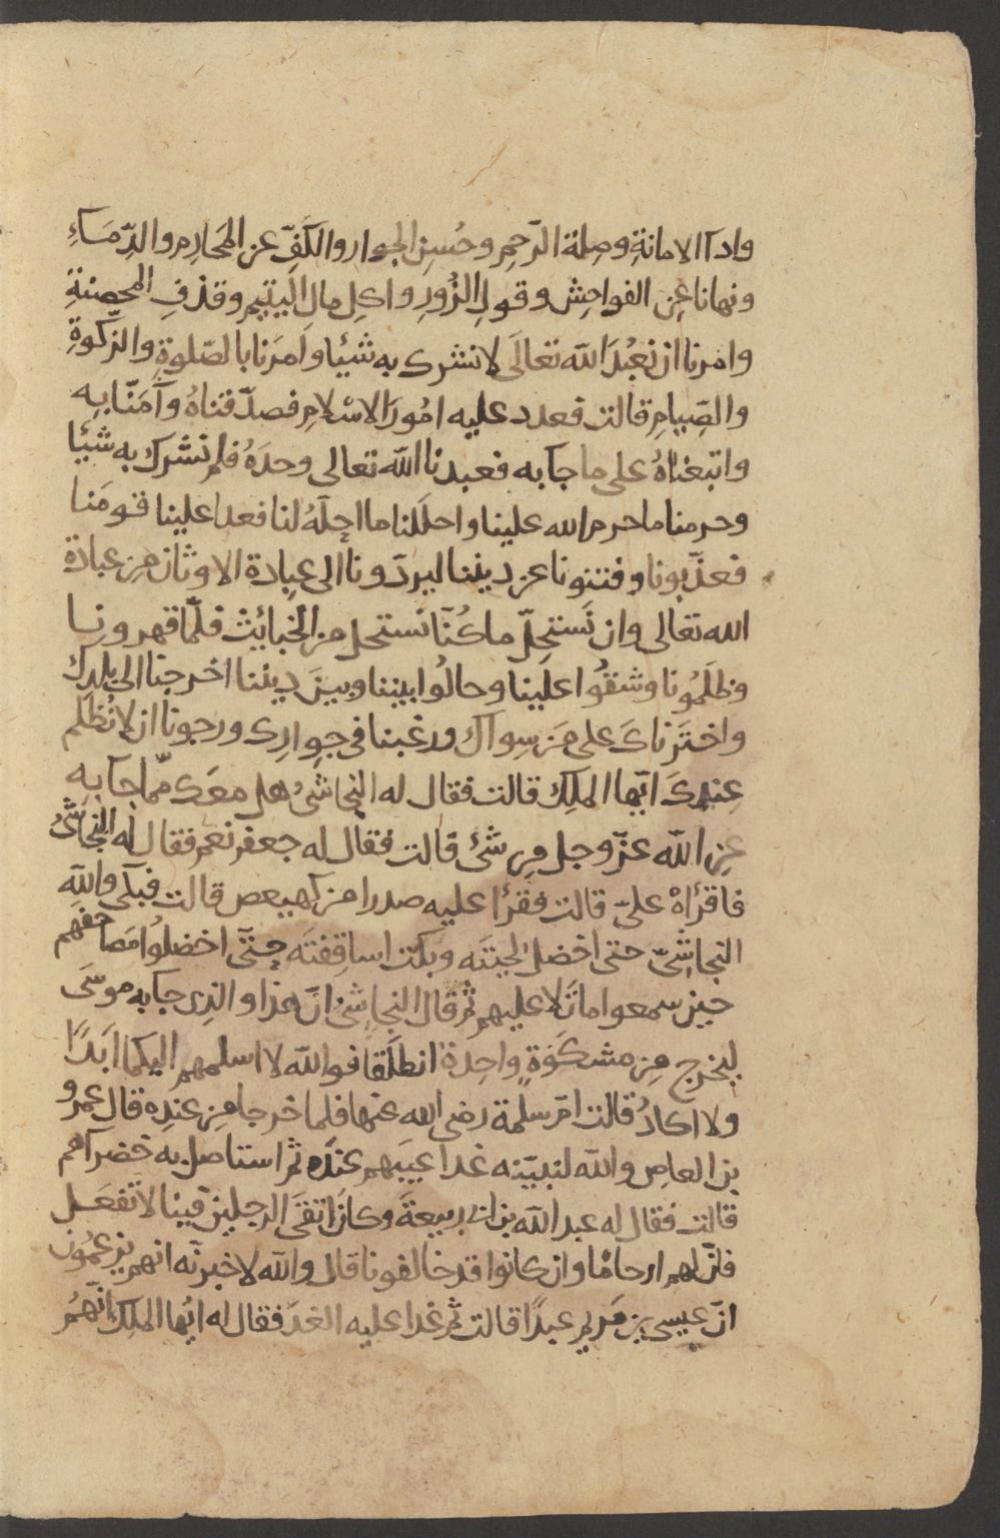 وادآ الامانةِ وصِلة الرّحِمِ وحُسنِ الجوار والكَفِّ عن المَحارِم والدِّمَآءِ
ونهانا عِن الفواحِش وقولِ الزُورِ واكلِ مالِ اليتيمِ وقذفِ المحصنةِ
وامرنا ان نعبُدَ الله تعالَى لا نشرك به شيئا وامَرَنا بالصّلوةِ والزكوةِ
والصِّيامِ قالت فعدد عليه امُورَ الاسْلامِ فصدّقناهُ وآمَنّا بِه
واتبعناهُ على ما جآ به فعبدنا الله تعالى وحدَهُ فلم نشرك به شيئا
وحرمنا ما حرم الله علينا واحلَلنا ما احِلّهُ لنا فعدا علينا قومَنا
فعذّبونا وفتنونا عن ديننا ليردّونا الى عِبادة الاوثان مِن عبادَة
الله تعالى وان نَستحِلّ ما كُنّا نَستحل من الخبائِث فلمّا قهرونا
وظلَمُونا وشقُوا علينا وحالُوا بيننا وبينَ ديننا اخرجنا الى بلدِك
واختَرناكَ على مَن سِواك ورغبنا في جِوارِك ورجونا ان لا نُظلَم
عِندكَ ايّها الملِك قالت فقال له النجاشىُ هل معَك ممّا جآ بِه
عنِ الله عزّ وجل مِن شئ قالت فقال له جعفر نعم فقال له النجاشىُ
فاقرَاهُ علىّ قالت فقرأ عليه صدرا من كهيعص قالت فبكَى والله
النجاشِىّ حتى اخضل لحيتَه وبكت اساقِفتَه حتّى اخضلُوا مَصاحفهم
حين سمعوا ما تَلا عليهم ثم قال النجاشىُ انّ هذا والذِى جآ به موسَى
ليخرج مِن مشكَوةٍ واحِدة انطلَقا فوالله لا اسلمهم اليكما ابَدًا
ولا اكادُ قالت امّ سلمة رضى الله عنها فلما خرجا من عندِه قال عمرو
بن العاص والله لنبيّنه غدا عيبَهم عندَه ثم استاصل به خضرآهم
قالت فقال له عبد الله بن ابى ربيعةَ وكانَ اتقَى الرجلين فينا لا تفعَل
فانّ لهم ارحامًا وان كانوا قد خالفونا قال والله لاخبرنّه انهم يزعمُون
انّ عيسى بن مَريم عبدًا قالت ثم غدا عليه الغدَ فقال له ايُها الملِك انّهمُ